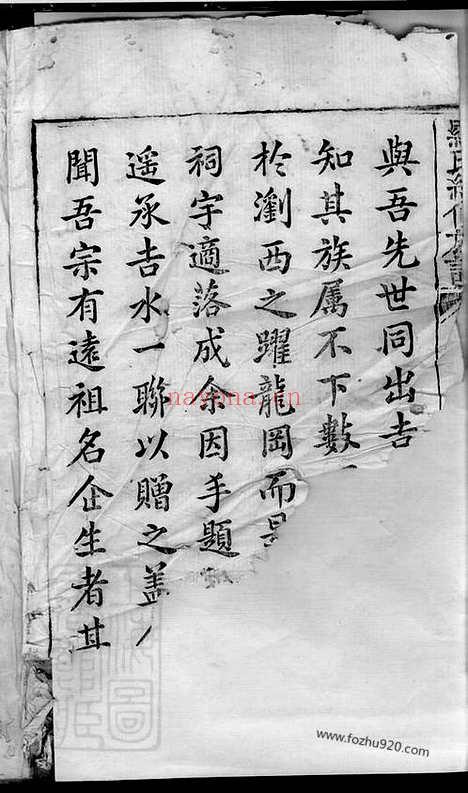 與吾先世同出吉
知其族属不下數
於瀏西之躍龍岡而
祠宇適落成余因手題
遥承吉水一聯以贈之盖
聞吾宗有遠祖名企生者其
nayona.cn
www.fozhu920.com